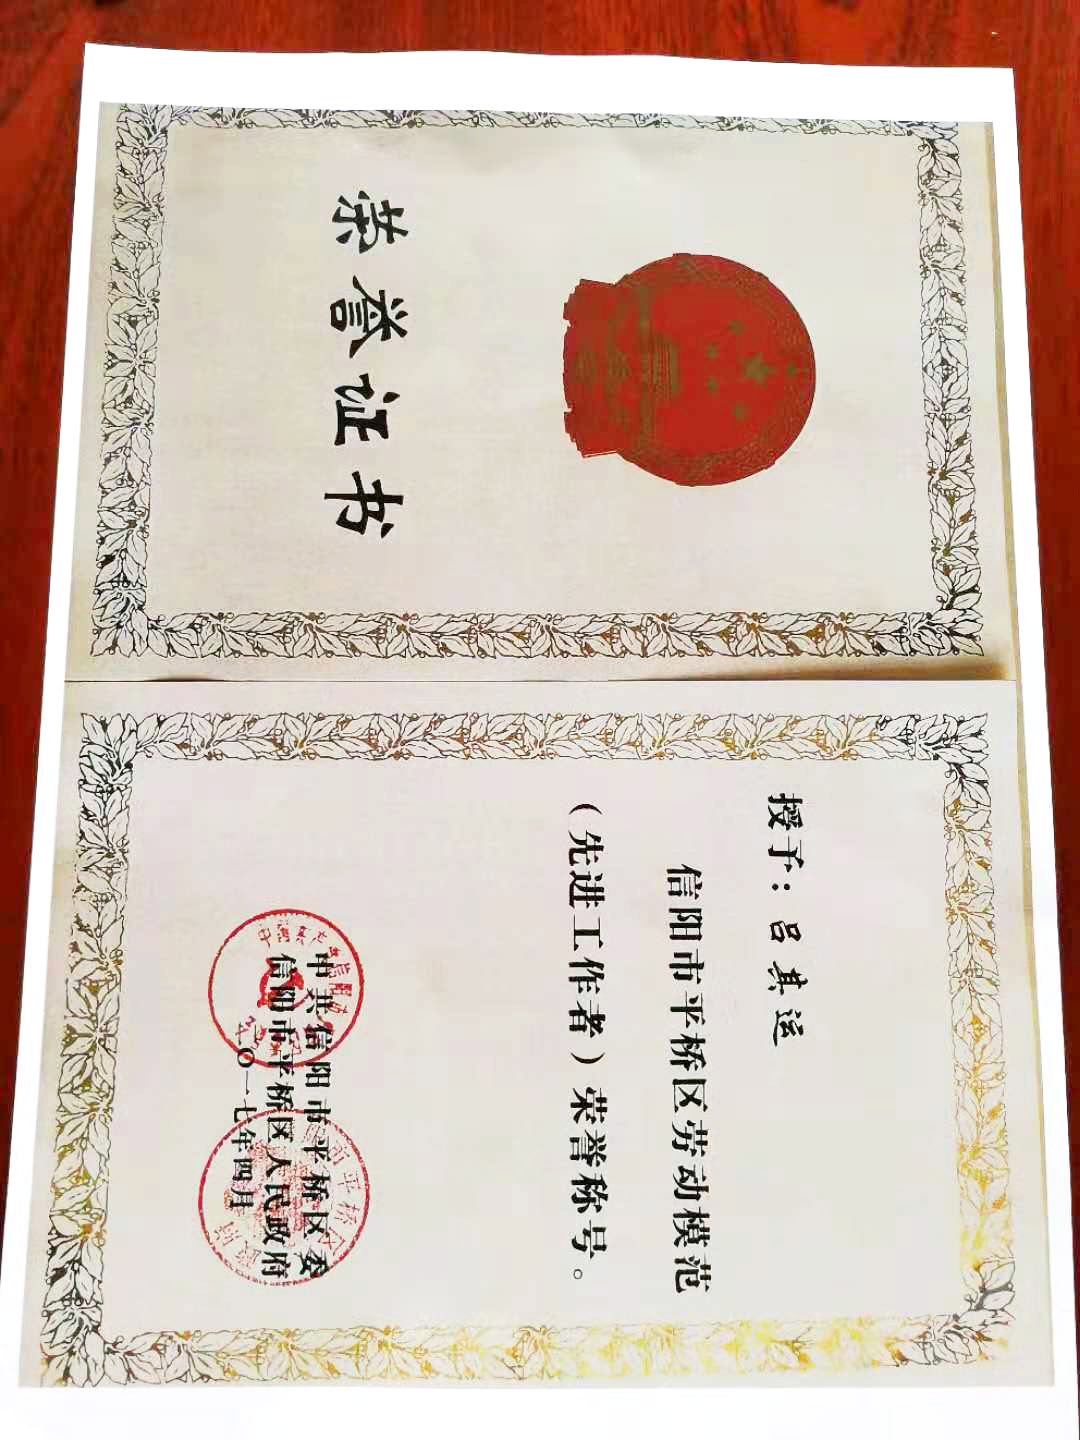 荣誉证书
授予：吕其运
信阳市平桥区劳动模范
（先进工作者）荣誉称号。
中共信阳市平桥区委
信阳市平桥区人民政府
二〇一七年四月